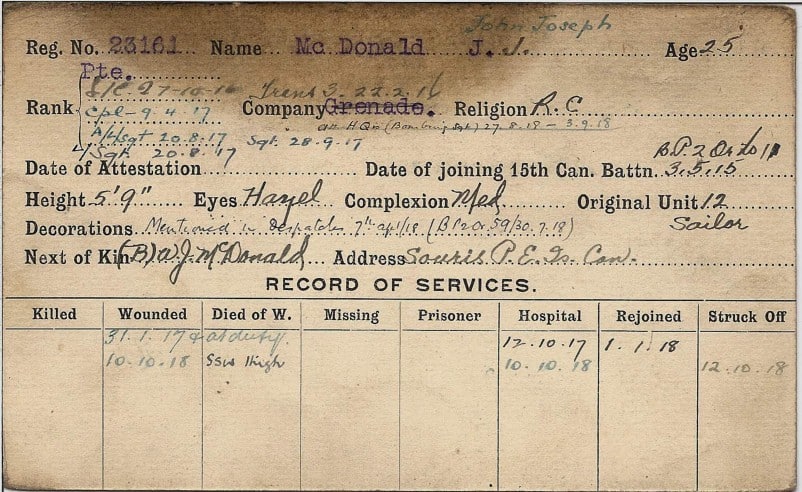 John Joseph
Reg. No. 23161 Name Mc Donald J. J. Age 25
Pte.
27-10-16 Trans 3. 22.2.16
Rank Cpl - 9.4.17 Company Grenade. Religion R. C
A/Sgt 20.8.17 Sgt. 28.9.17 att H Qrs (Bombing Sgt) 27.8.18 - 3.9.18
L/Sgt. 20.8.17 B.P.2 Or to 11
Date of Attestation Date of joining 15th Can. Battn. 3.5.15
Height 5'9" Eyes Hazel Complexion Med Original Unit 12
Decorations Mentioned in Despatches 7th apl/18 (B P2 Or 59/30.7.18) Sailor
Next of Kin (B) W J. McDonald Address Souris P. E. Is. Can.
RECORD OF SERVICES.
Killed Wounded Died of W. Missing Prisoner Hospital Rejoined Struck Off
31.1.17 & at duty. 12.10.17 1.1.18
10.10.18 SSW thigh 10.10.18 12.10.18